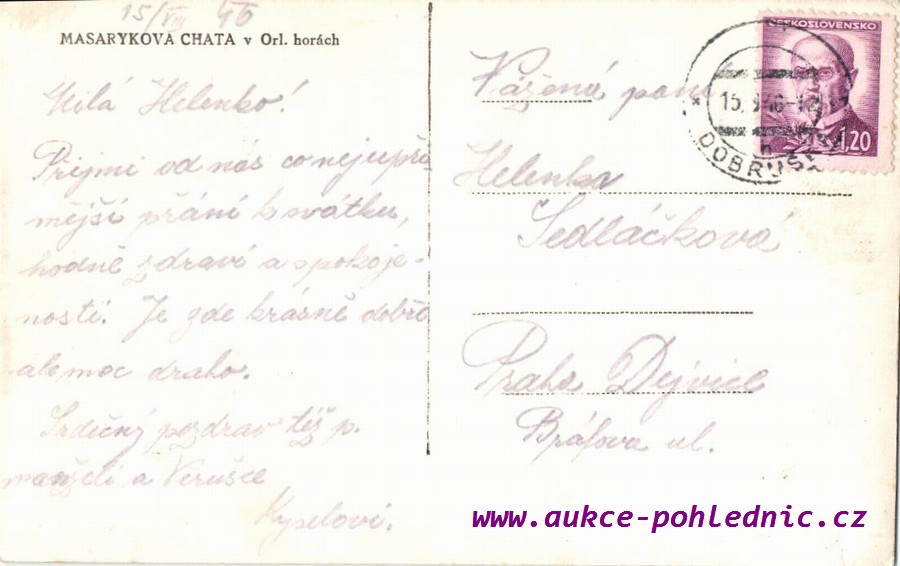 15/VIII 46
MASARYKOVA CHATA v Orl. horách
Milá Helenko!
Přijmi od nás co nejupří
mější přání k svátku,
hodně zdraví a spokoje-
nosti. Je zde krásně dobře
ale moc draho.
Srdečný pozdrav též p.
manželi a Verušce
Kyselovi.
ČESKOSLOVENSKO
1,20
DOBRUŠ
Vážená paní
Helenka
Sedláčková
Praha Dejvice
Bráfova ul.
www.aukce-pohlednic.cz